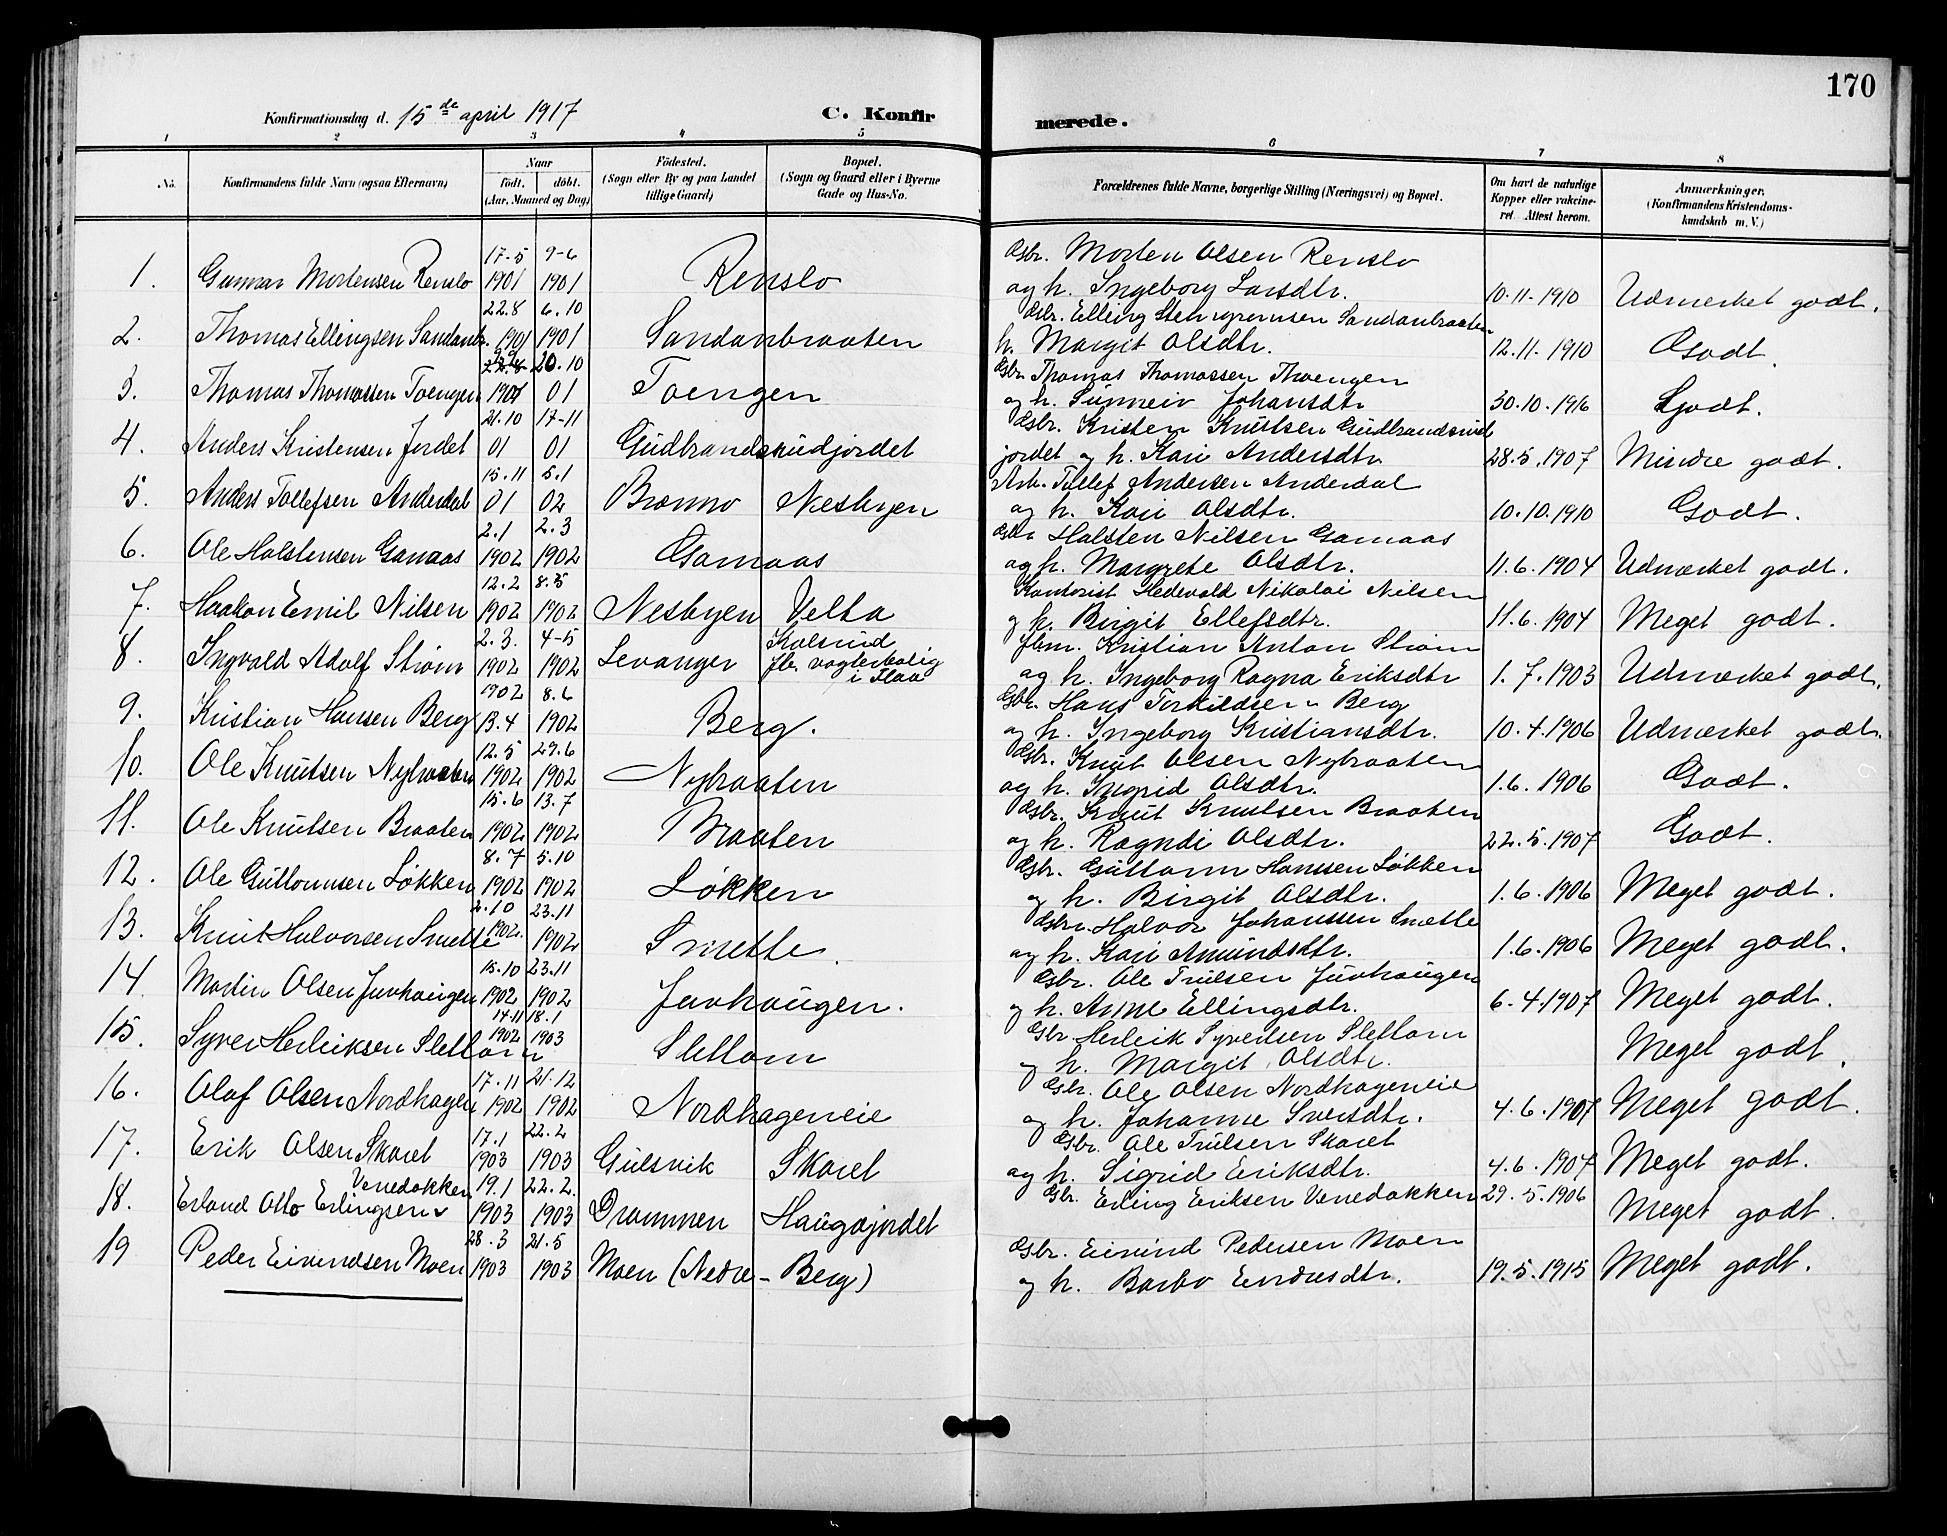 170
Konfirmationsdag d. 15de april 1917
C. Konfirmerede.
1 2 3 4 5 6 7 8
No.
Konfirmandens fulde Navn (ogsaa Efternavn)
Naar
født. døbt.
(Aar, Maaned og Dag)
Fødested.
(Sogn eller By og paa Landet
tillige Gaard)
Bopæl.
(Sogn og Gaard eller i Byerne
Gade og Hus-No.
Forældrenes fulde Navne, borgerlige Stilling (Næringsvei) og Bopæl.
Om havt de naturlige
Kopper eller vakcine-
ret. Attest herom.
Anmærkninger.
(Konfirmandens Kristendoms-
kundskab m. V.)
17-5 9-6 Gsbr. Morten Olsen Renslo
1. Gunnar Mortensen Renslo 1901 1901 Renslo og h. Ingeborg Larsdtr. 10.11.1910 Udmærket godt.
22.8 6.10 Gsbr. Elling Sandanbraaten
2. Thomas Ellingsen Sandanbr. 1901 1901 Sandanbraaten h. Margit Olsdtr. 12.11.1910 Godt
20.10 Gsbr. Thomas Thomassen Thoengen
3. Thomas Thomassen Toengen 1901 01 Toengen og h. Sünneiv Johansdtr 30.10.1916 Godt.
21.10 17-11 Gsbr. Kristen Knutsen Gudbrandsrud
4. Anders Kristensen Jordet 01 01 Gudbrandsrudjordet jordet og h. Kari Andersdtr. 28.5.1907 Mindre godt.
15.11 5.1 Arb. Tollef Andersen Anderdal
5. Anders Tollefsen Anderdal 01 02 Bromo Nesbyen og h. Kari Olsdtr. 10.10.1910 Godt.
2.1 2.3 Gsbr Halsten Nilsen Gamaas
6. Ole Halstensen Gamaas 1902 1902 Gamaas og h. Margrete Olsdtr. 11.6.1904 Udmærket godt.
12.2 8.5 Kontorist Hedevald Nikolai Nilsen
7. Haakon Emil Nilsen 1902 1902 Nesbyen Velta og h. Birgit Ellefsdtr. 11.6.1904 Meget godt.
2.3. 4-5 Kolsrud Jbm. Kristian Anton Strøm
8. Ingvald Adolf Strøm 1902 1902 Levanger Jb. vogterbolig i Flaa og h. Ingeborg Ragna Eriksdtr 1.7.1903 Udmærket godt.
1902 8.6 Gsbr. Hans Torkildsen Berg
9. Kristian Hansen Berg 13.4 1902 Berg. og h. Ingeborg Kristiansdtr. 10.4.1906 Udmærket godt.
12.5 29.6 Gsbr. Knut Olsen Nybraaten
10. Ole Knutsen Nybraaten 1902 1902 Nybraaten og h. Ingrid Olsdtr. 1.6.1906 Godt.
15.6 13.7 Gsbr. Knut Knutsen Braaten
11. Ole Knutsen Braaten 1902 1902 Braaten og h. Ragndi Olsdtr. 22.5.1907 Godt.
8.7 5.10 Gsbr. Guttorm Hansen Løkken
12. Ole Guttormsen Løkken 1902 1902 Løkken og h. Birgit Olsdtr. 1.6.1906 Meget godt.
2.10 23.11 Gsbr. Halvor Johanssen Smette
13. Knut Halvorsen Smette 1902. 1902 Smette. og h. Kari Amundsdtr. 1.6.1906 Meget godt.
15.10 23.11 Gsbr. Ole Trulsen Juvhaugen
14 Martin Olsen Juvhaugen 1902 1902 Juvhaugen. og h. Anne Ellingsdtr. 6.4.1907 Meget godt.
14.11 18.1 Gsbr Herleik Syvertsen Slettom
15. Syver Herleiksen Slettom 1902 1903 Slettom og h. Margit Olsdtr. Meget godt.
17.11 21.12 Gsbr. Ole Olsen Nordhageneie
16. Olaf Olsen Nordhagen 1902 1902 Nordhageneie og h. Johanne Sversdtr. 4.6.1907 Meget godt.
17.1 22.2 Gsbr. Ole Trulsen Skaret
17. Erik Olsen Skaret 1903 1903 Gulsvik Skaret og h. Sigrid Eriksdtr. 4.6.1907 Meget godt.
Venedokken 19.1 22.2. Gsbr. Erling Eriksen Venedokken 29.5.1906
18. Erland Otto Erlingsen 1903 1903 Drammen Haugsjordet Meget godt.
28.3 21.5 Gsbr. Eivind Pedersen Moen
19 Peder Eivindsen Moen 1903 1903 Moen (Nedre-Berg) og h. Barbo Endresdtr. 19.5.1915 Meget godt.